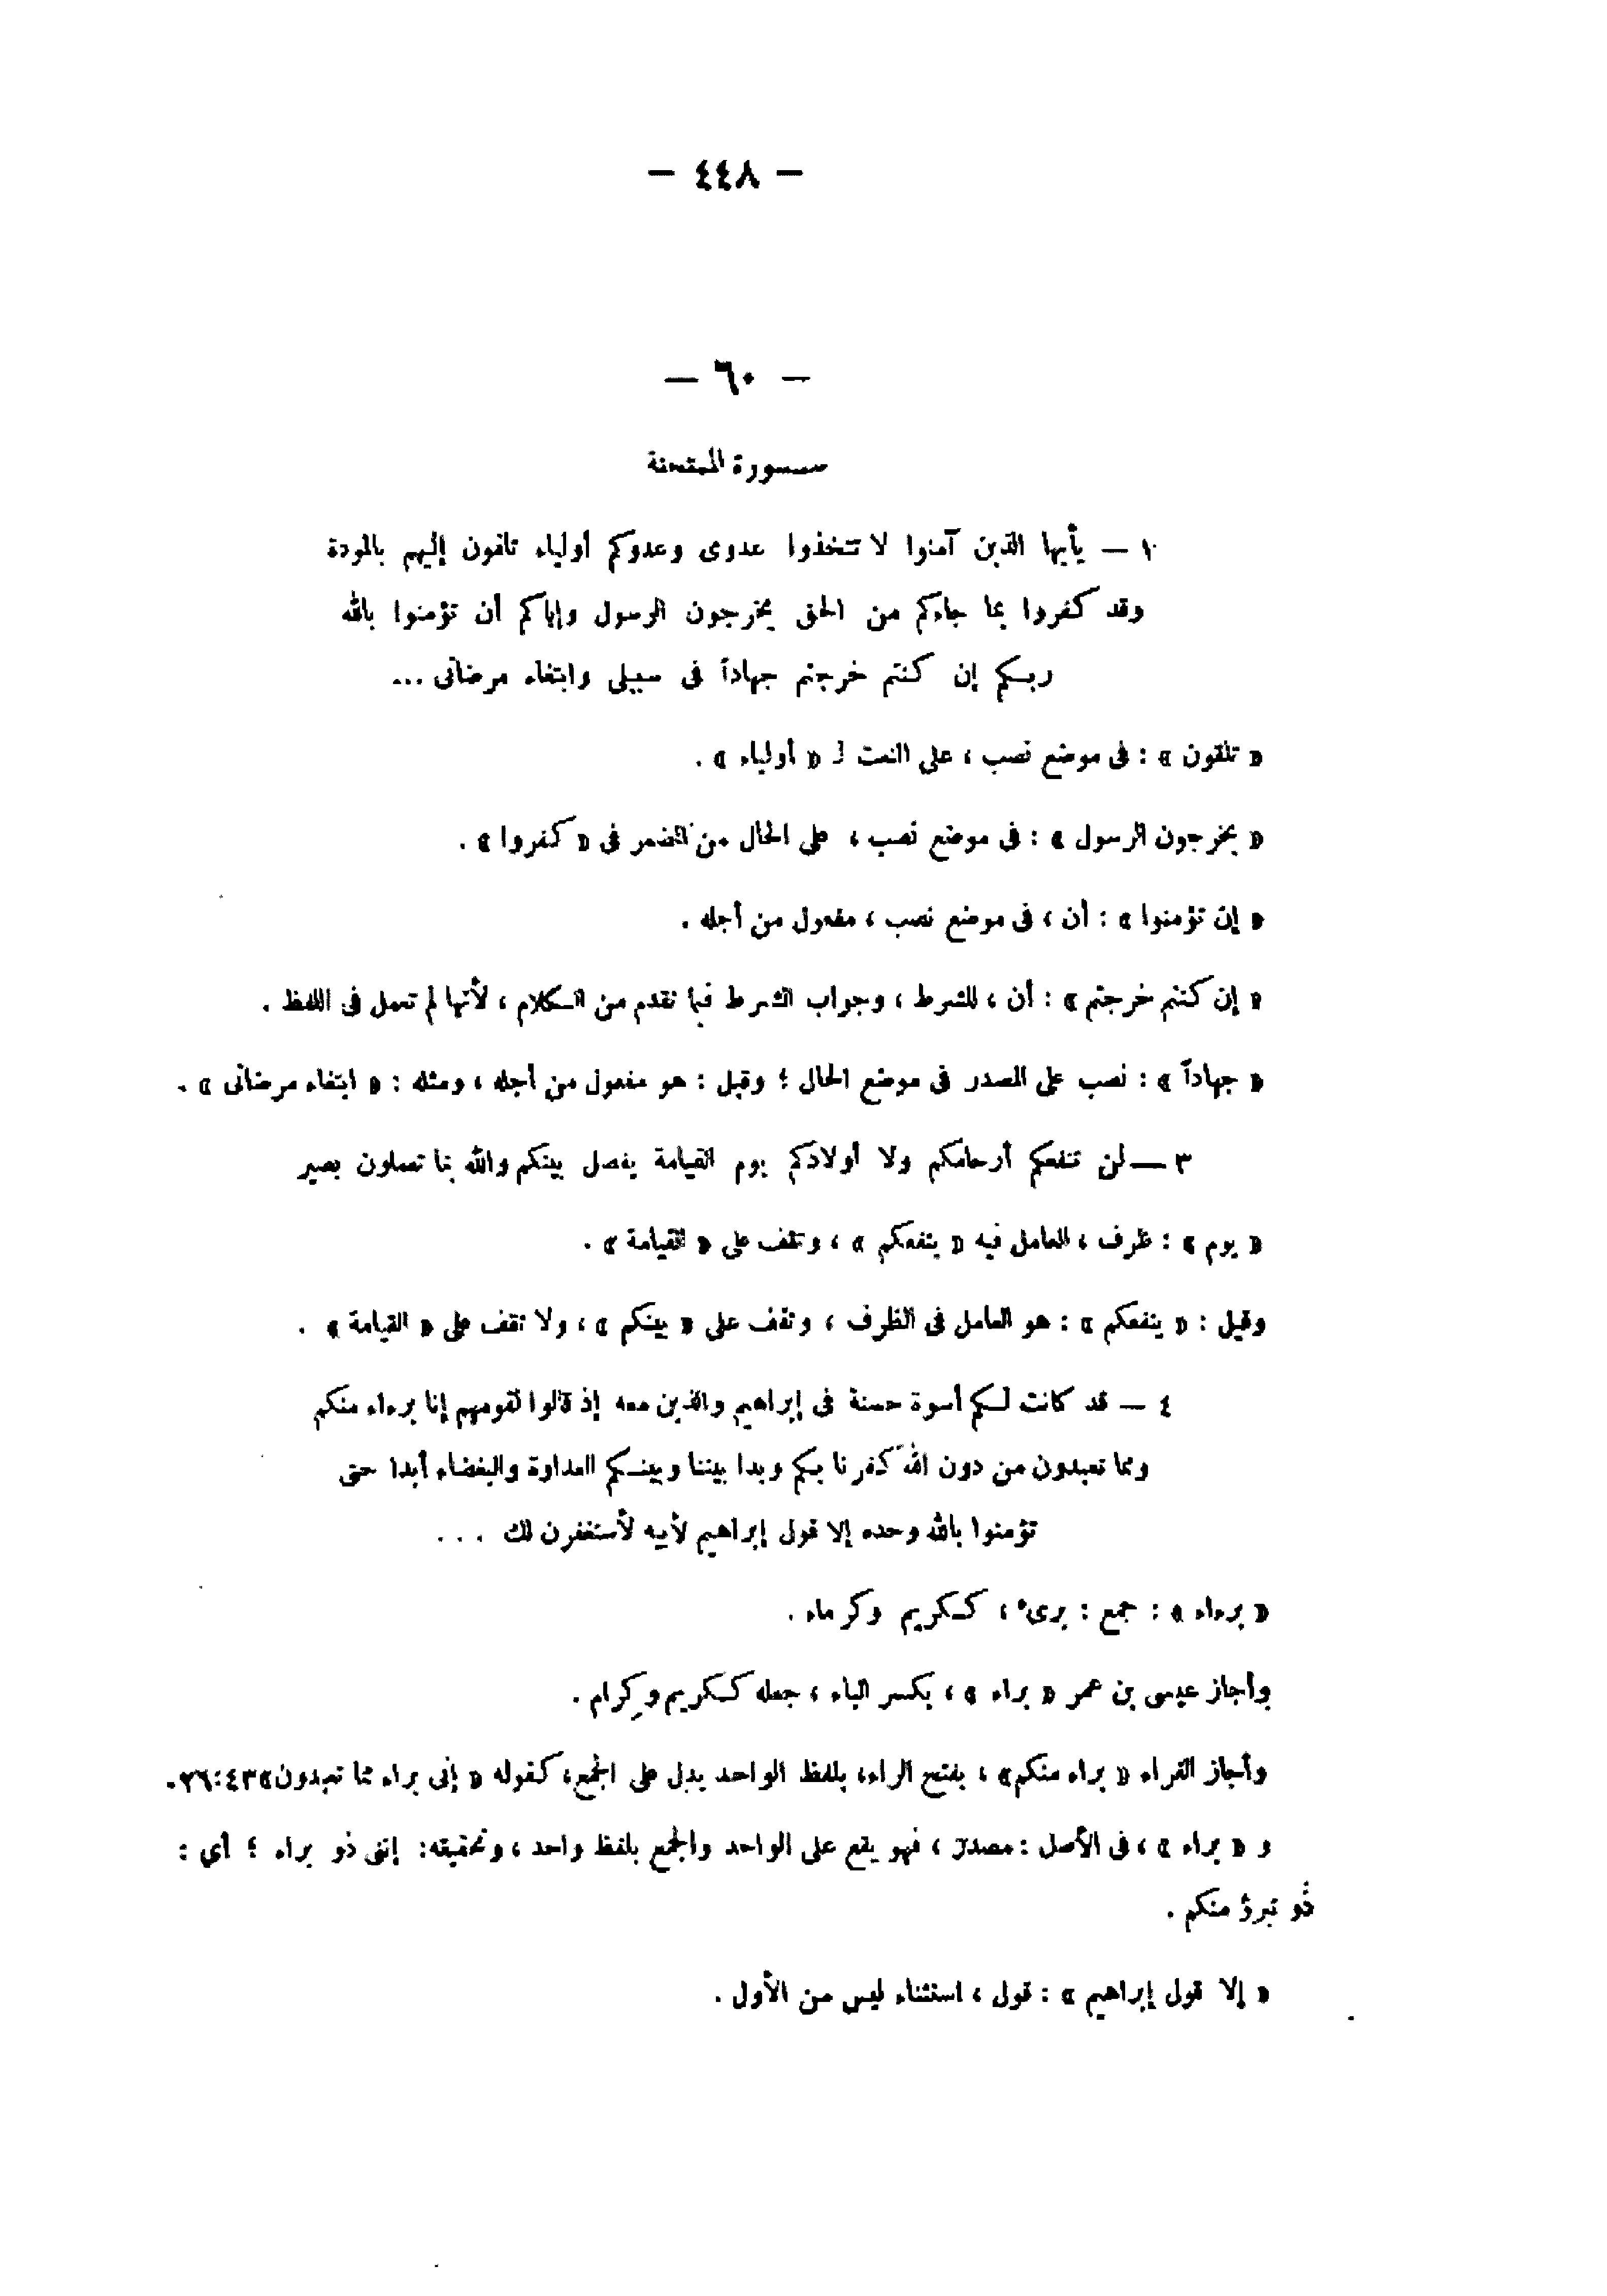 — ٤٤٨ —
— ٦٠ —
سورة الممتحنة
١ — يأيها الذين آمنوا لا تتخذوا عدوى وعدوكم أولياء تلقون إليهم بالمودة
وقد كفروا بما جاءكم من الحق يخرجون الرسول وإياكم أن تؤمنوا بالله
ربكم إن كنتم خرجتم جهاداً فى سبيلى وابتغاء مرضاتى ...
« تلقون » : فى موضع نصب ، على النعت لـ « أولياء » .
« يخرجون الرسول » : فى موضع نصب ، على الحال من المضمر فى « كفروا » .
« إن تؤمنوا » : أن ، فى موضع نصب ، مفعول من أجله .
« إن كنتم خرجتم » : أن ، للشرط ، وجواب الشرط فيما تقدم من الكلام ، لأنها لم تعمل فى اللفظ .
« جهاداً » : نصب على المصدر فى موضع الحال ؛ وقيل : هو مفعول من أجله ، ومثله : « ابتغاء مرضاتى » .
٣ — لن تنفعكم أرحامكم ولا أولادكم يوم القيامة يفصل بينكم والله بما تعملون بصير
« يوم » : ظرف ، العامل فيه « ينفعكم » ، وتقف على « القيامة » .
وقيل : « ينفعكم » : هو العامل فى الظرف ، وتقف على « بينكم » ، ولا تقف على « القيامة » .
٤ — قد كانت لكم أسوة حسنة فى إبراهيم والذين معه إذ قالوا لقومهم إنا برءاء منكم
ومما تعبدون من دون الله كفرنا بكم وبدا بيننا وبينكم العداوة والبغضاء أبدا حتى
تؤمنوا بالله وحده إلا قول إبراهيم لأبيه لأستغفرن لك . . .
« برءاء » : جمع : برىء ، ككريم وكرماء .
وأجاز عيسى بن عمر « براء » ، بكسر الباء ، جعله ككريم وكرام .
وأجاز القراء « براء منكم» ، بفتح الراء، بلفظ الواحد يدل على الجمع، كقوله « إنى براء مما تعبدون»٢٦:٤٣.
و « براء » ، فى الأصل : مصدر ، فهو يقع على الواحد والجمع بلفظ واحد ، وتحقيقه: إننى ذو براء ؛ أي :
ذُو تبرؤ منكم .
« إلا قول إبراهيم » : قول ، استثناء ليس من الأول .